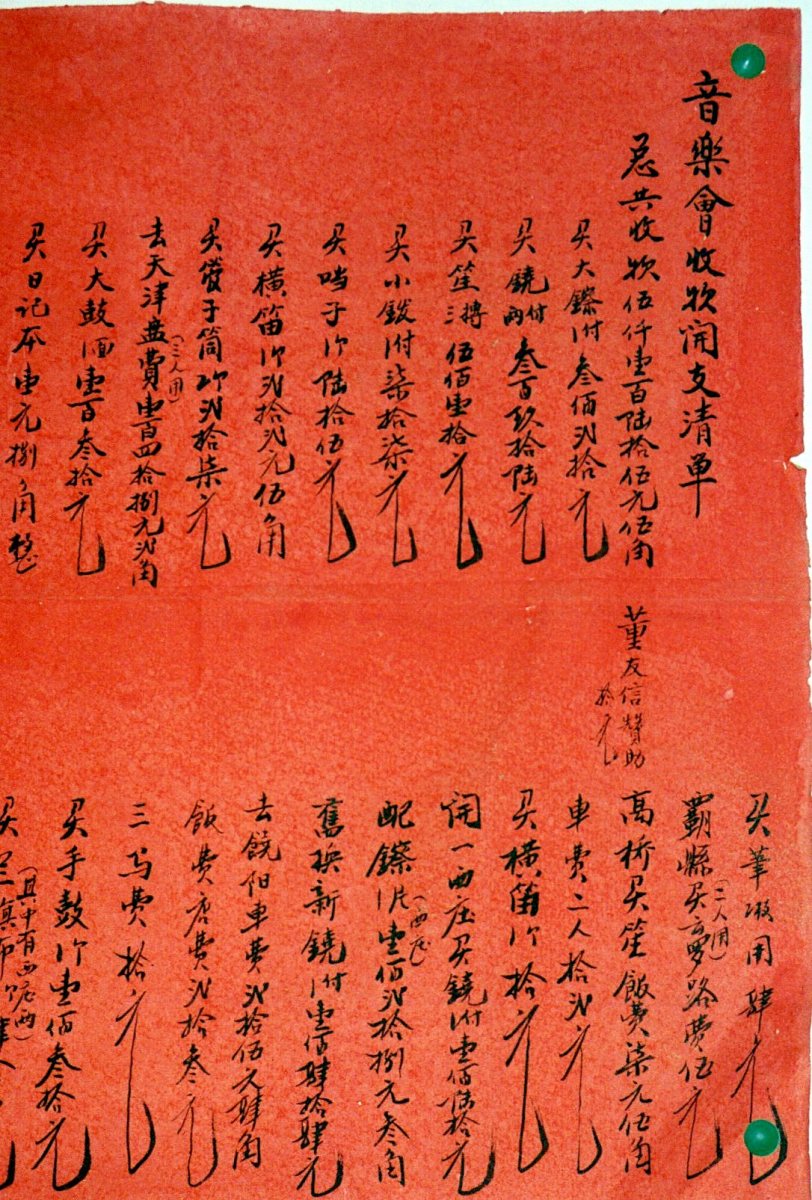 音樂會收欵開支清单
总共收欵伍仟壹百陆拾伍元伍角
买大鑔1付叁佰贰拾元
买鐃两付叁百玖拾陆元
买笙三攒伍佰壹拾元
买小鈸1付柒拾柒元
买噹子1个陆拾伍元
买橫笛1个贰拾贰元伍角
买管子筒 贰拾柒元
去天津盘費壹百四拾捌元贰角
(三人用)
买大鼓1面壹百叁拾元
买日记本壹元捌角整
董友信贊助
拾元
买筆 用肆元
覇縣买 路费伍元
(三人用)
高桥买笙飯費柒元伍角
車费二人拾贰元
买橫笛1个拾元
開一西庄买鐃1付壹佰陆拾元
配鑔1片壹佰贰拾捌元叁角
(西庄)
舊换新鐃1付壹佰肆拾肆元
去饒阳車費贰拾伍元肆角
飯費店費贰拾叁元
三马费拾元
买手鼓1个壹佰叁拾元
(其中有西庄两)
买 旗布